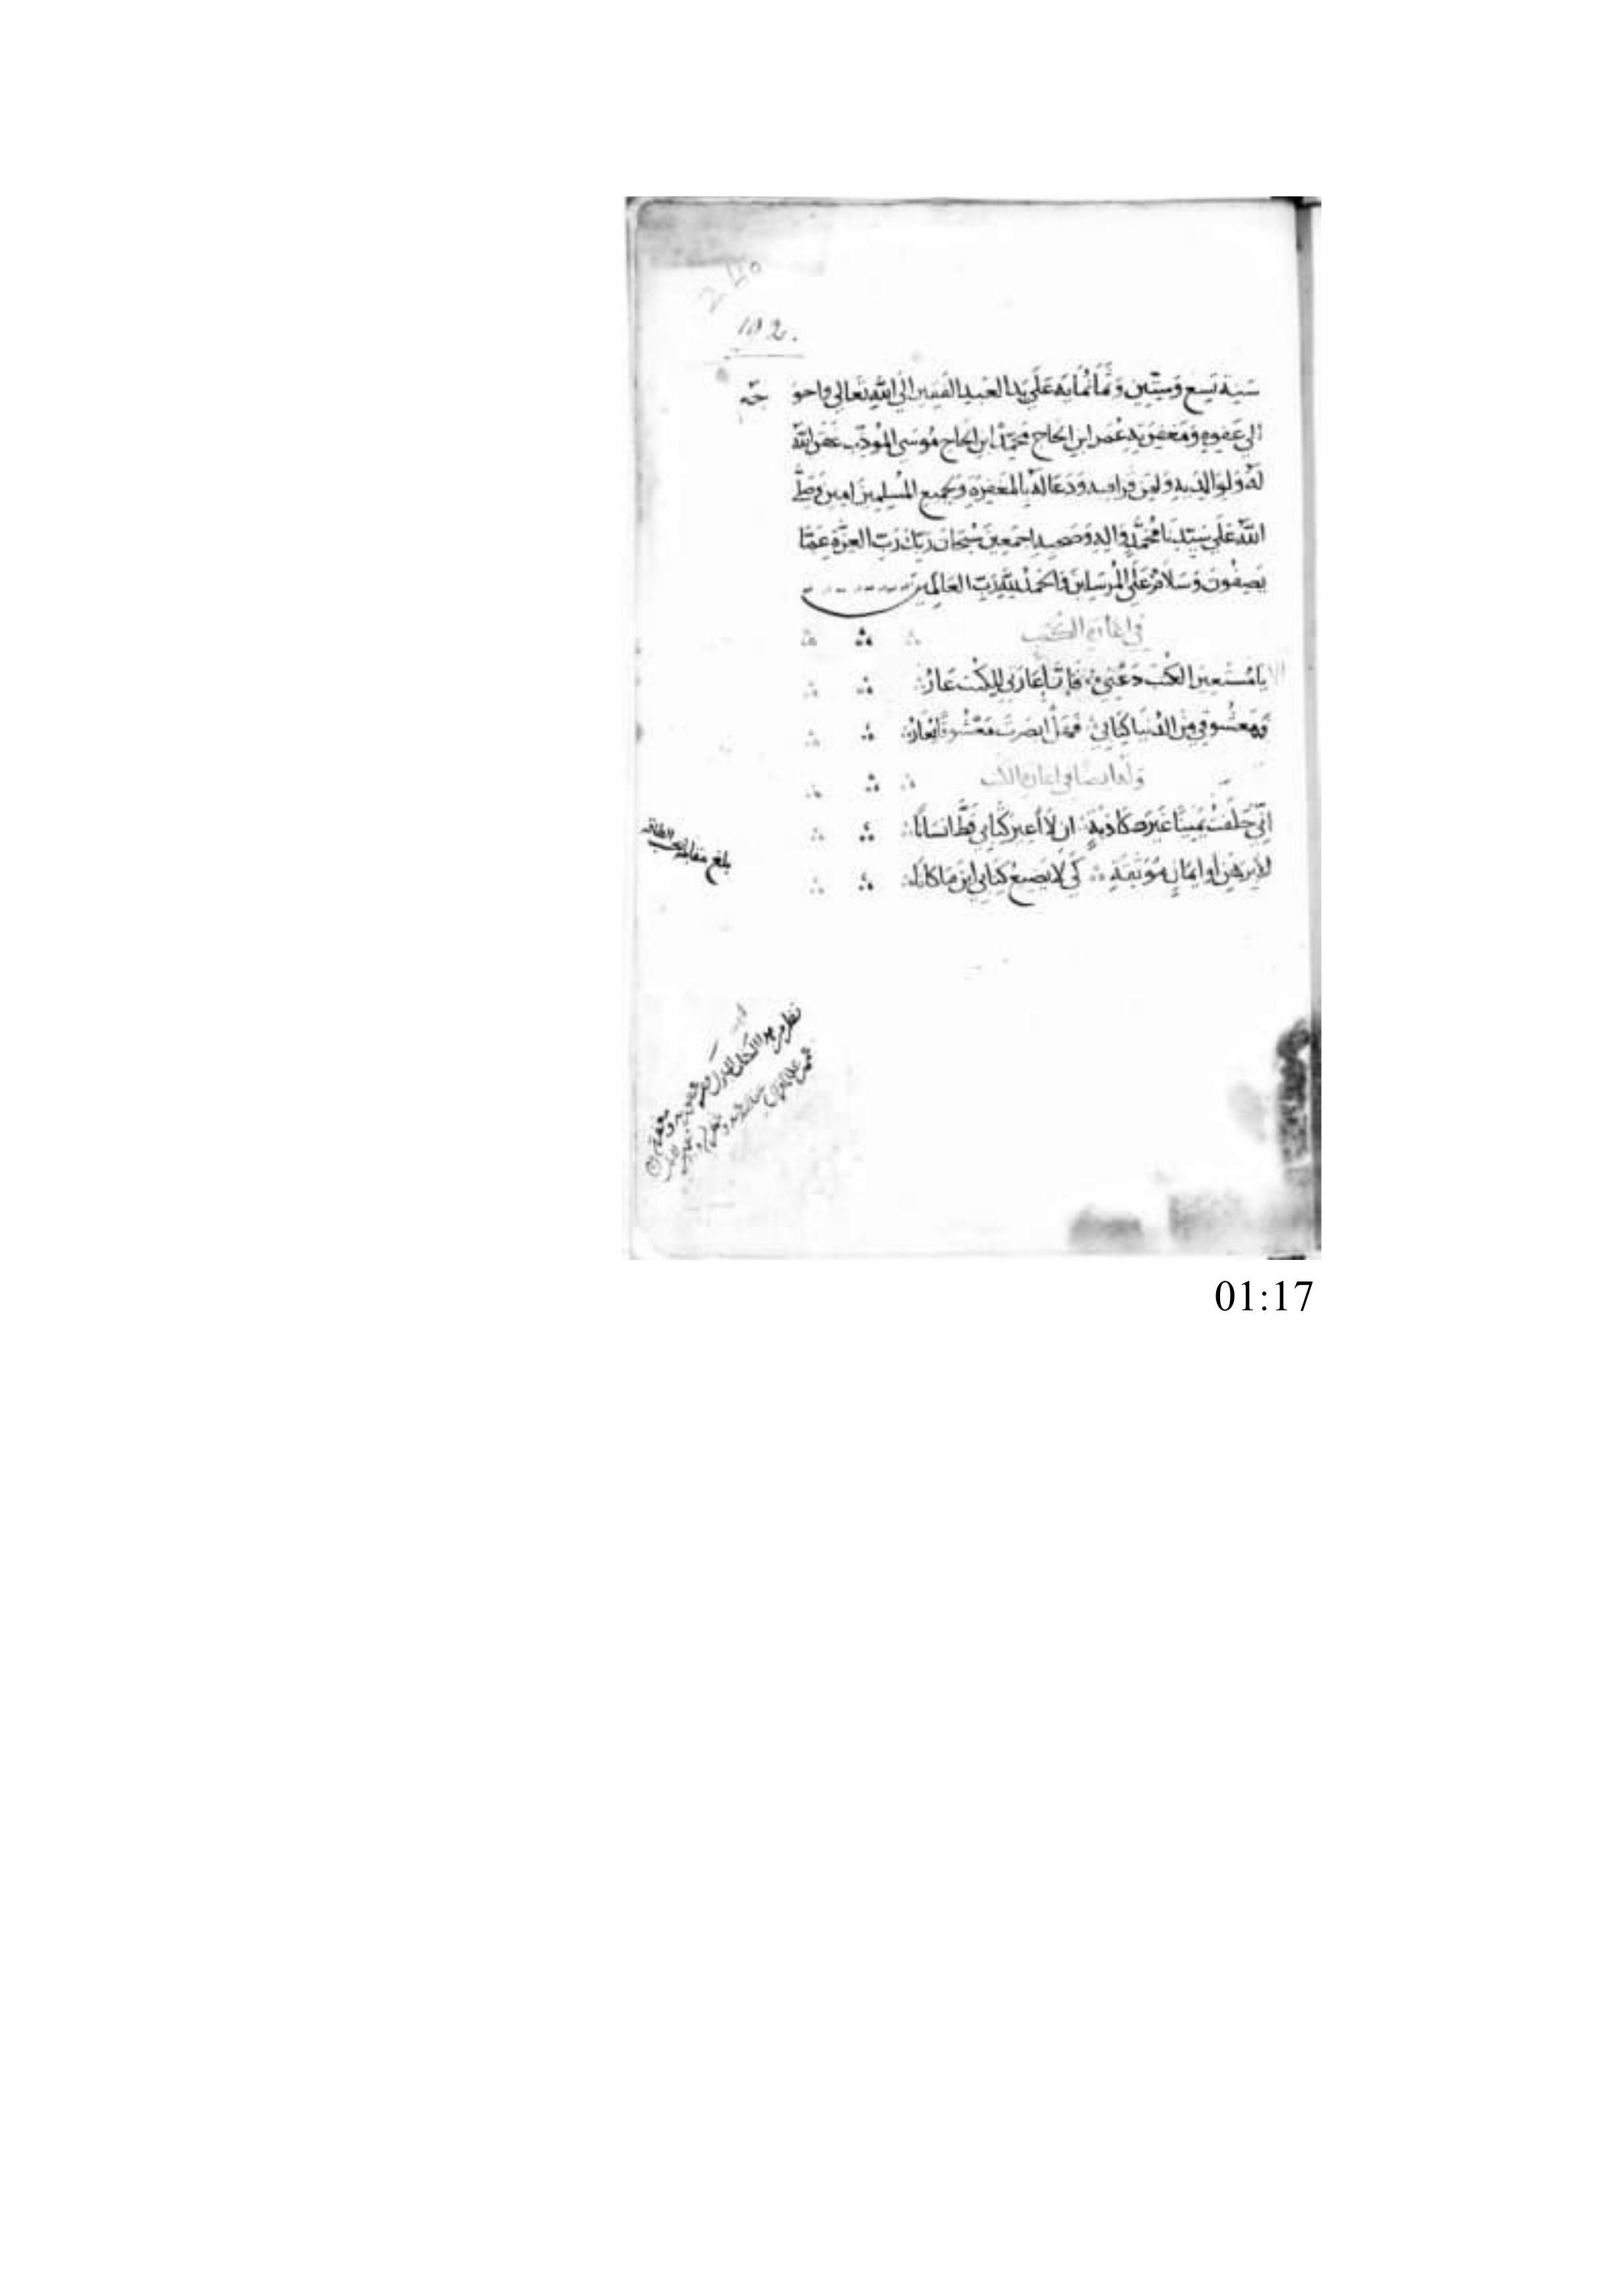 240
192.
سَنة تِسع وَستّين وَثمَانُمايَه عَلَى يَد العَبد الفَقير الَى اللّه تَعَالى واحو جَهم
الى عَفوهِ وَمَغفرَتِه عُمَر ابن الحَاج مُحَمّد ابن الحَاج مُوسَى المؤدّب غَفَر اللّه
لَهُ وَلوالدَيه وَلمَن قرا فيه وَدَعَا لَهُ بالمَغفِرَةِ وَلجَميع المُسلمينَ امين وَصَلَّى
اللّه عَلَى سَيّدنَا مُحَمَّدٍ وَالِهِ وَصَحبه اجمَعينَ سُبحَان رَبّك رَبّ العزّةِ عَمّا
يَصِفُونَ وَسَلَامٌ عَلَى المُرسَلينَ وَالحَمدُ للّهِ رَبّ العَالمِين
في اعارة الكتب
الا يَا مُستَعير الكتب دَعني فَإنّ إعَارَتي للكتب عَارُ
وَمَعشُوقي مِن الدُنيَا كتَابي فَهَل ابصَرتَ مَعشُوقًا يُعَارُ
وله ايضا في اعارة الكتب
انّي حَلَفتُ يَمينًا غَيرَ كَاذبَةٍ ان لَا أعير كتَابي قَطُّ انسَانًا
الا برَهن او ايمَانٍ مُوَثقَةٍ كَي لَا يَضيعُ كتَابي اين مَا كَانَا
بلغ مقابلة بحسب الطاقه
نظر من هذا الكتاب
01:17